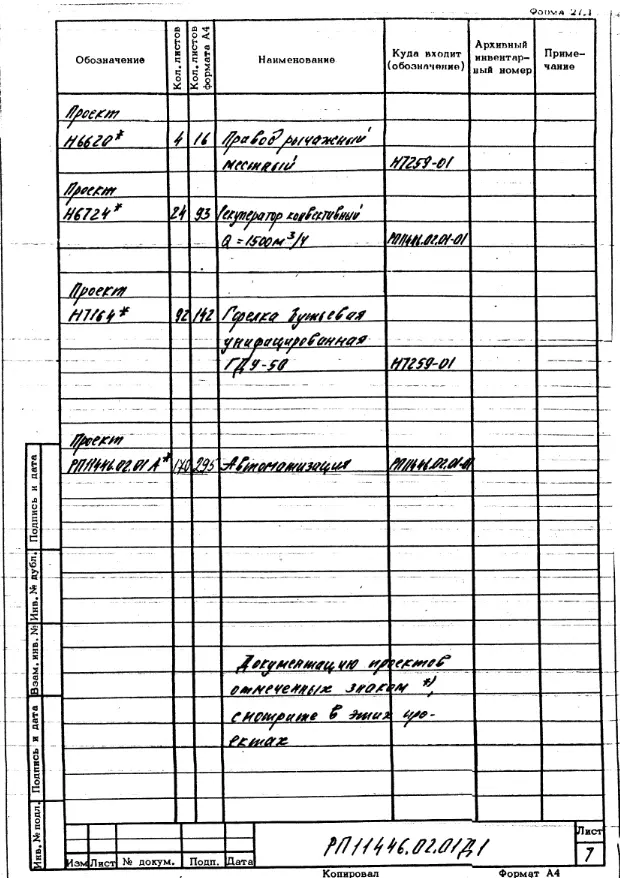 Форма 27.1
Обозначение
Кол. листов
Кол. листов формата А4
Наименование
Куда входит (обозначение)
Архивный инвентарный номер
Примечание
Проект
Н6620* 4 16 Привод рычажный
местный Н7259-01
Проект
Н6724* 24 93 Рекуператор конвективный
Q = 1500 м³/ч РП11446.02.01-01
Проект
Н7164* 92 142 Горелка дутьевая
унифицированная
ГДУ-50 Н7259-01
Проект
РП11446.02.01 А* 170 295 Автоматизация РП11446.02.01-01
Документацию проектов
отмеченных знаком *),
смотрите в этих про-
ектах
Подпись и дата
Инв. № дубл.
Взам. инв. №
Подпись и дата
Инв. № подл.
Изм Лист № докум. Подп. Дата
РП11446.02.01Д1
Лист
7
Копировал Формат А4